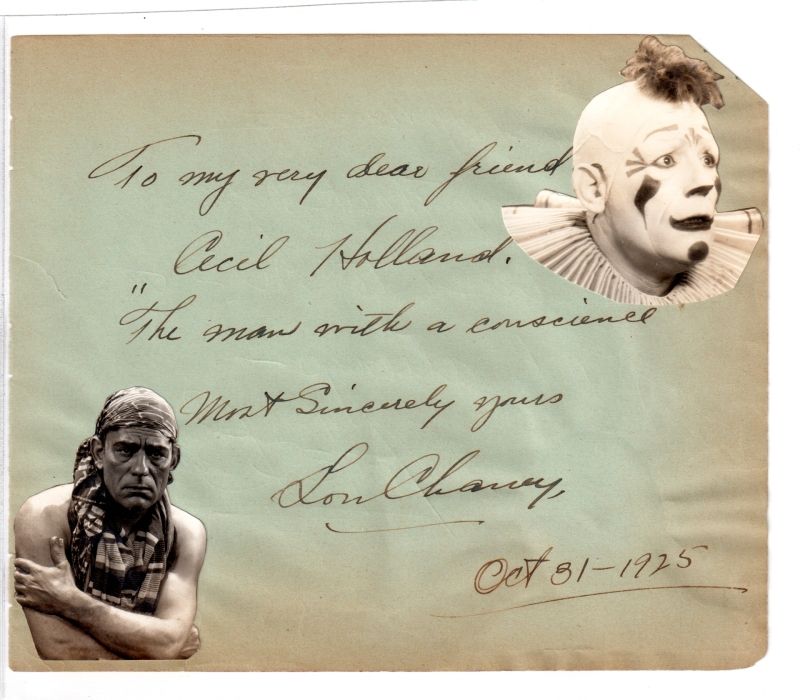 To my very dear friend
Cecil Holland.
"The man with a conscience
Most Sincerely yours
Lon Chaney,
Oct 31-1925